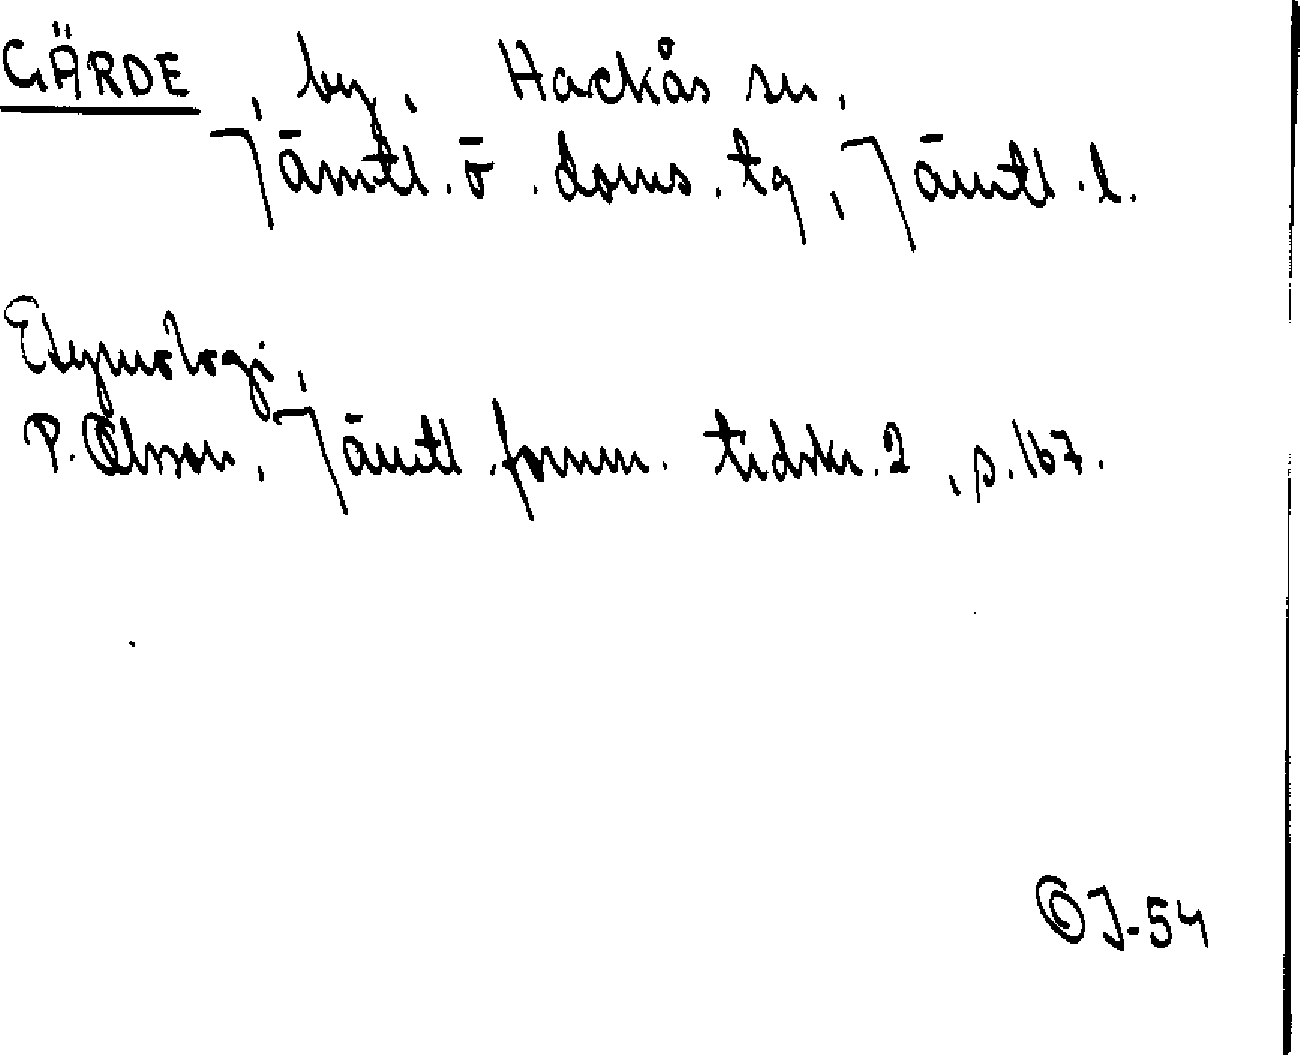 GÄRDE, by, Hackås sn,
Jämtl. ö. doms. tg, Jämtl. l.
Etymologi,
P. Olsson, Jämtl. fornm. tidskr. 2, s. 167.
OJ-54